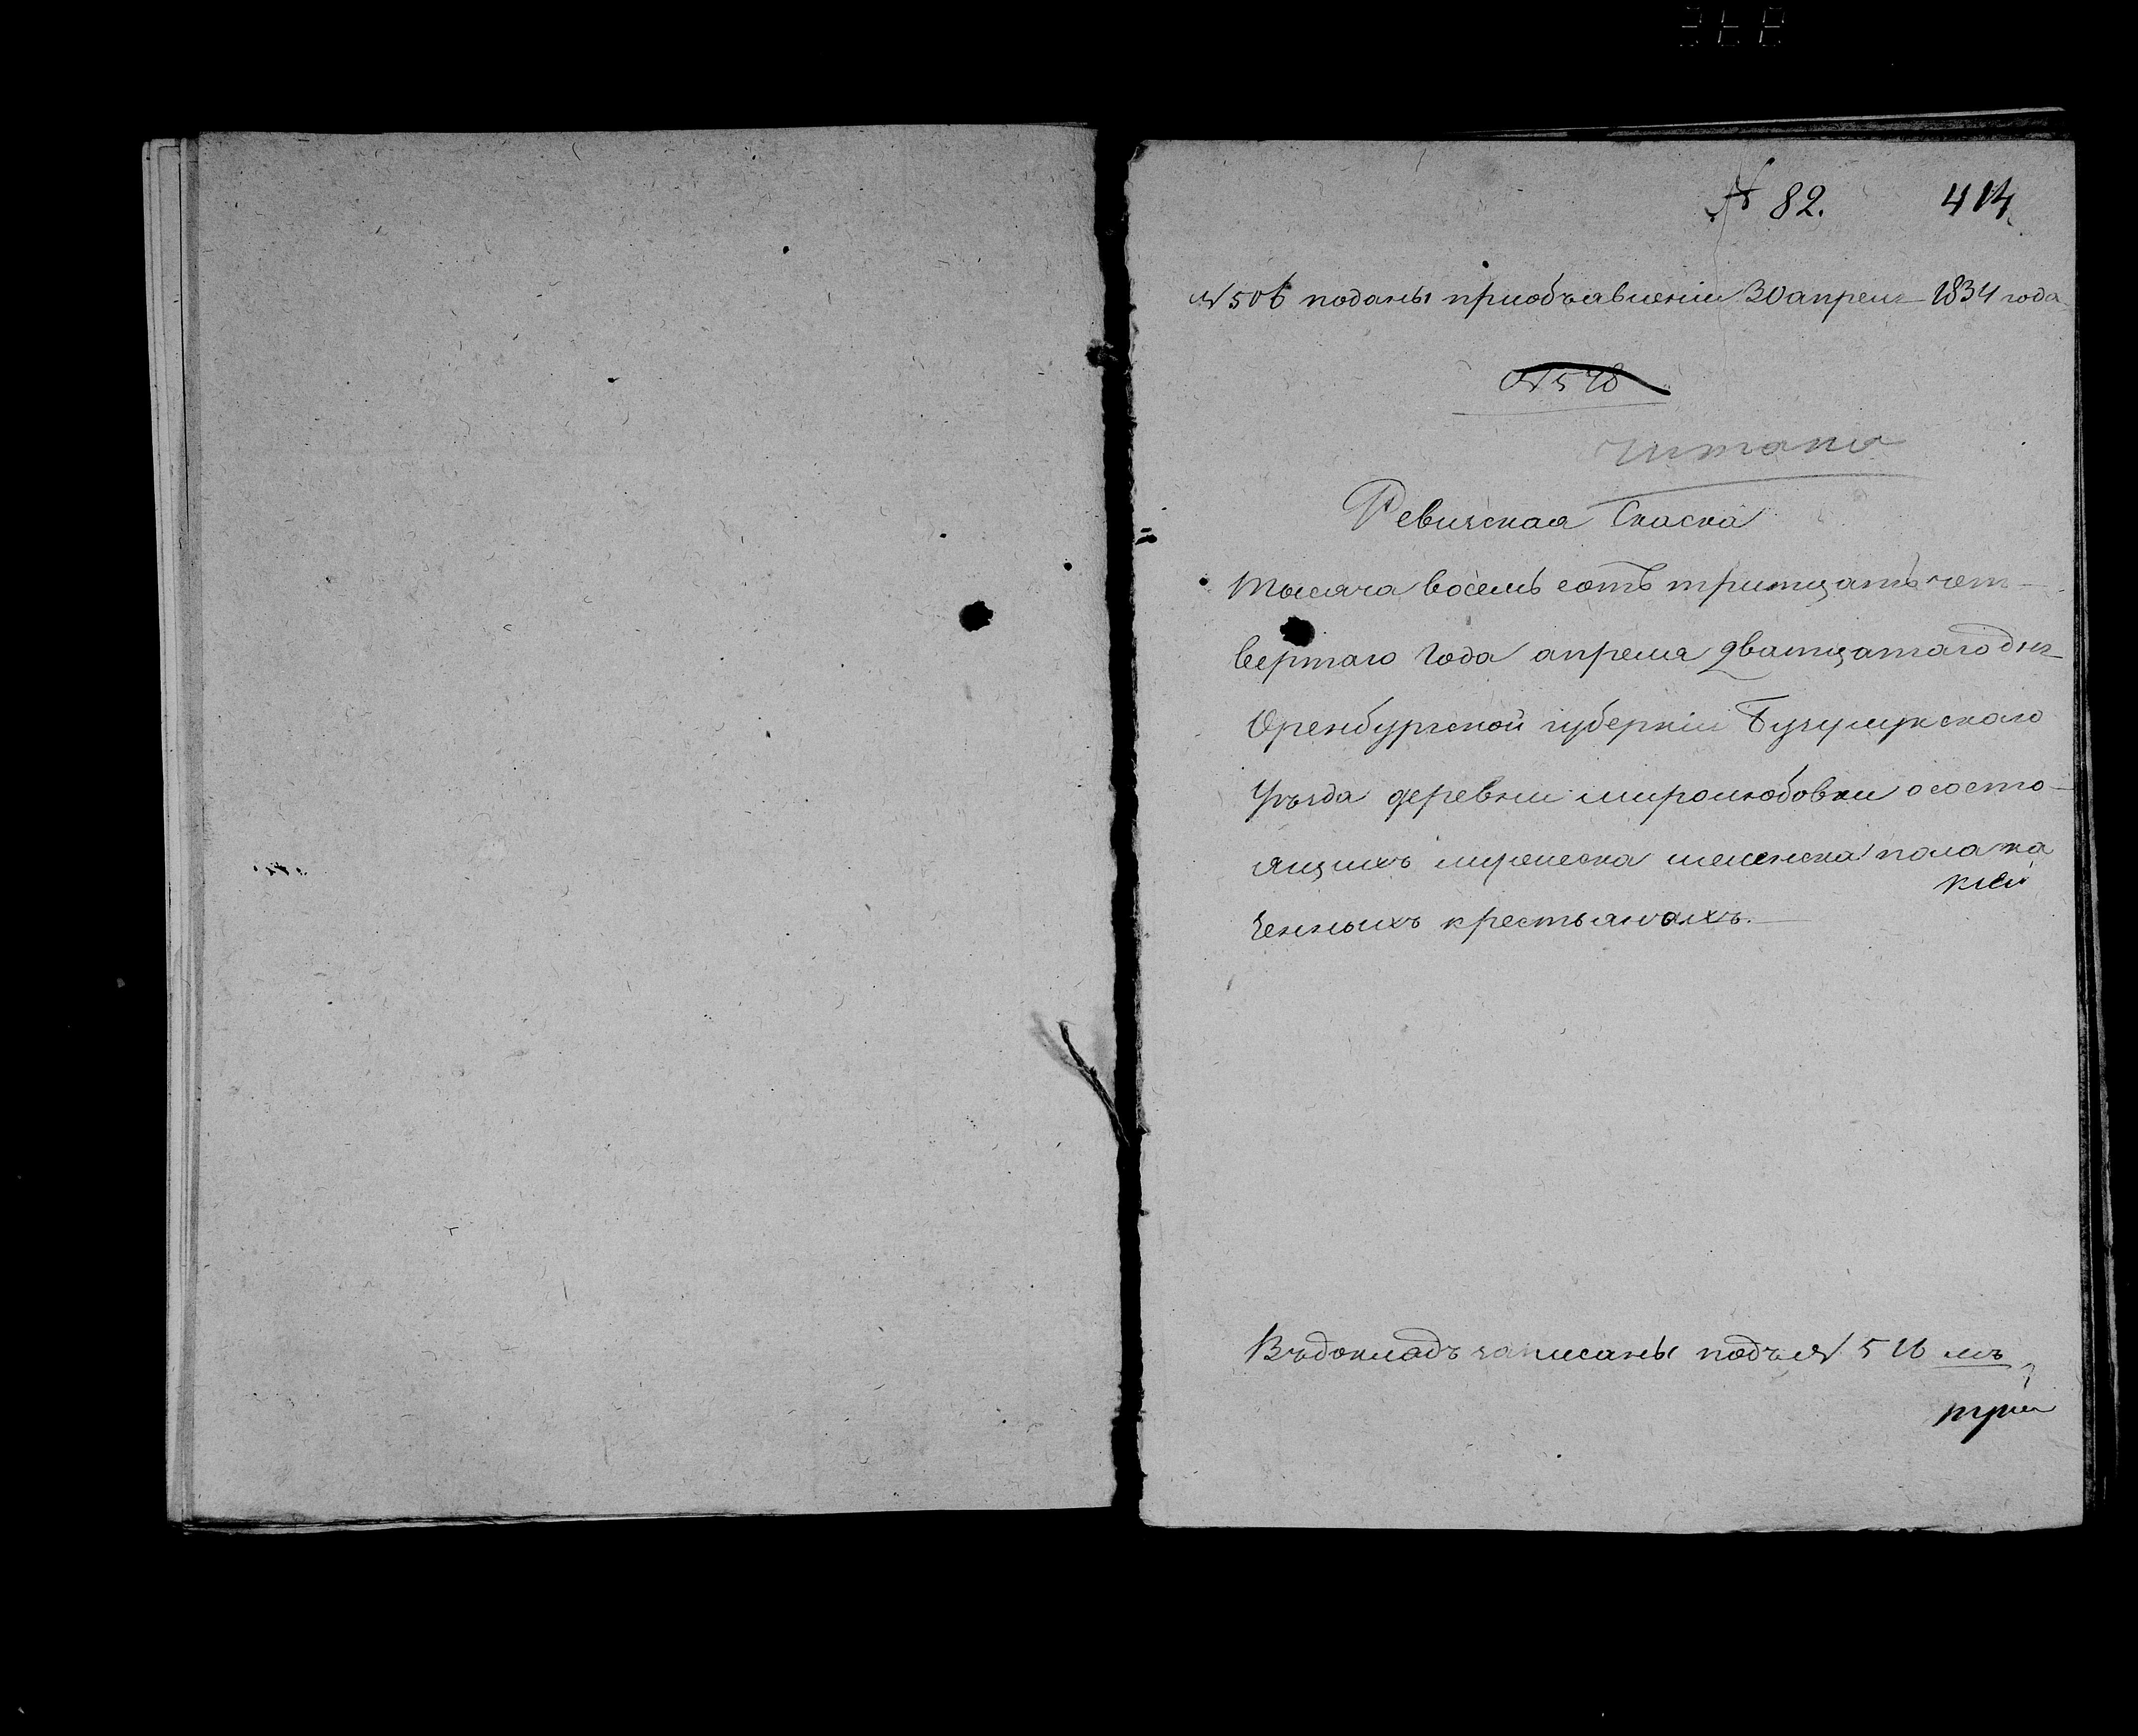 № 82. 414
№ 506 поданы приобъявленіи 30 апреля 1834 года
№ 528
читана
Ревиская Скаска
Тысяча восемь сотъ тритцать чет-
вертаго года апреля дватцатаго дня
Оренбургской губерніи Бузулукскаго
Уезда деревни миролюбовки о состо-
ящихъ мужеска и женска пола ка
зенныхъ крестьянахъ.
Въдокладъ записаны подъ № 516 мъ